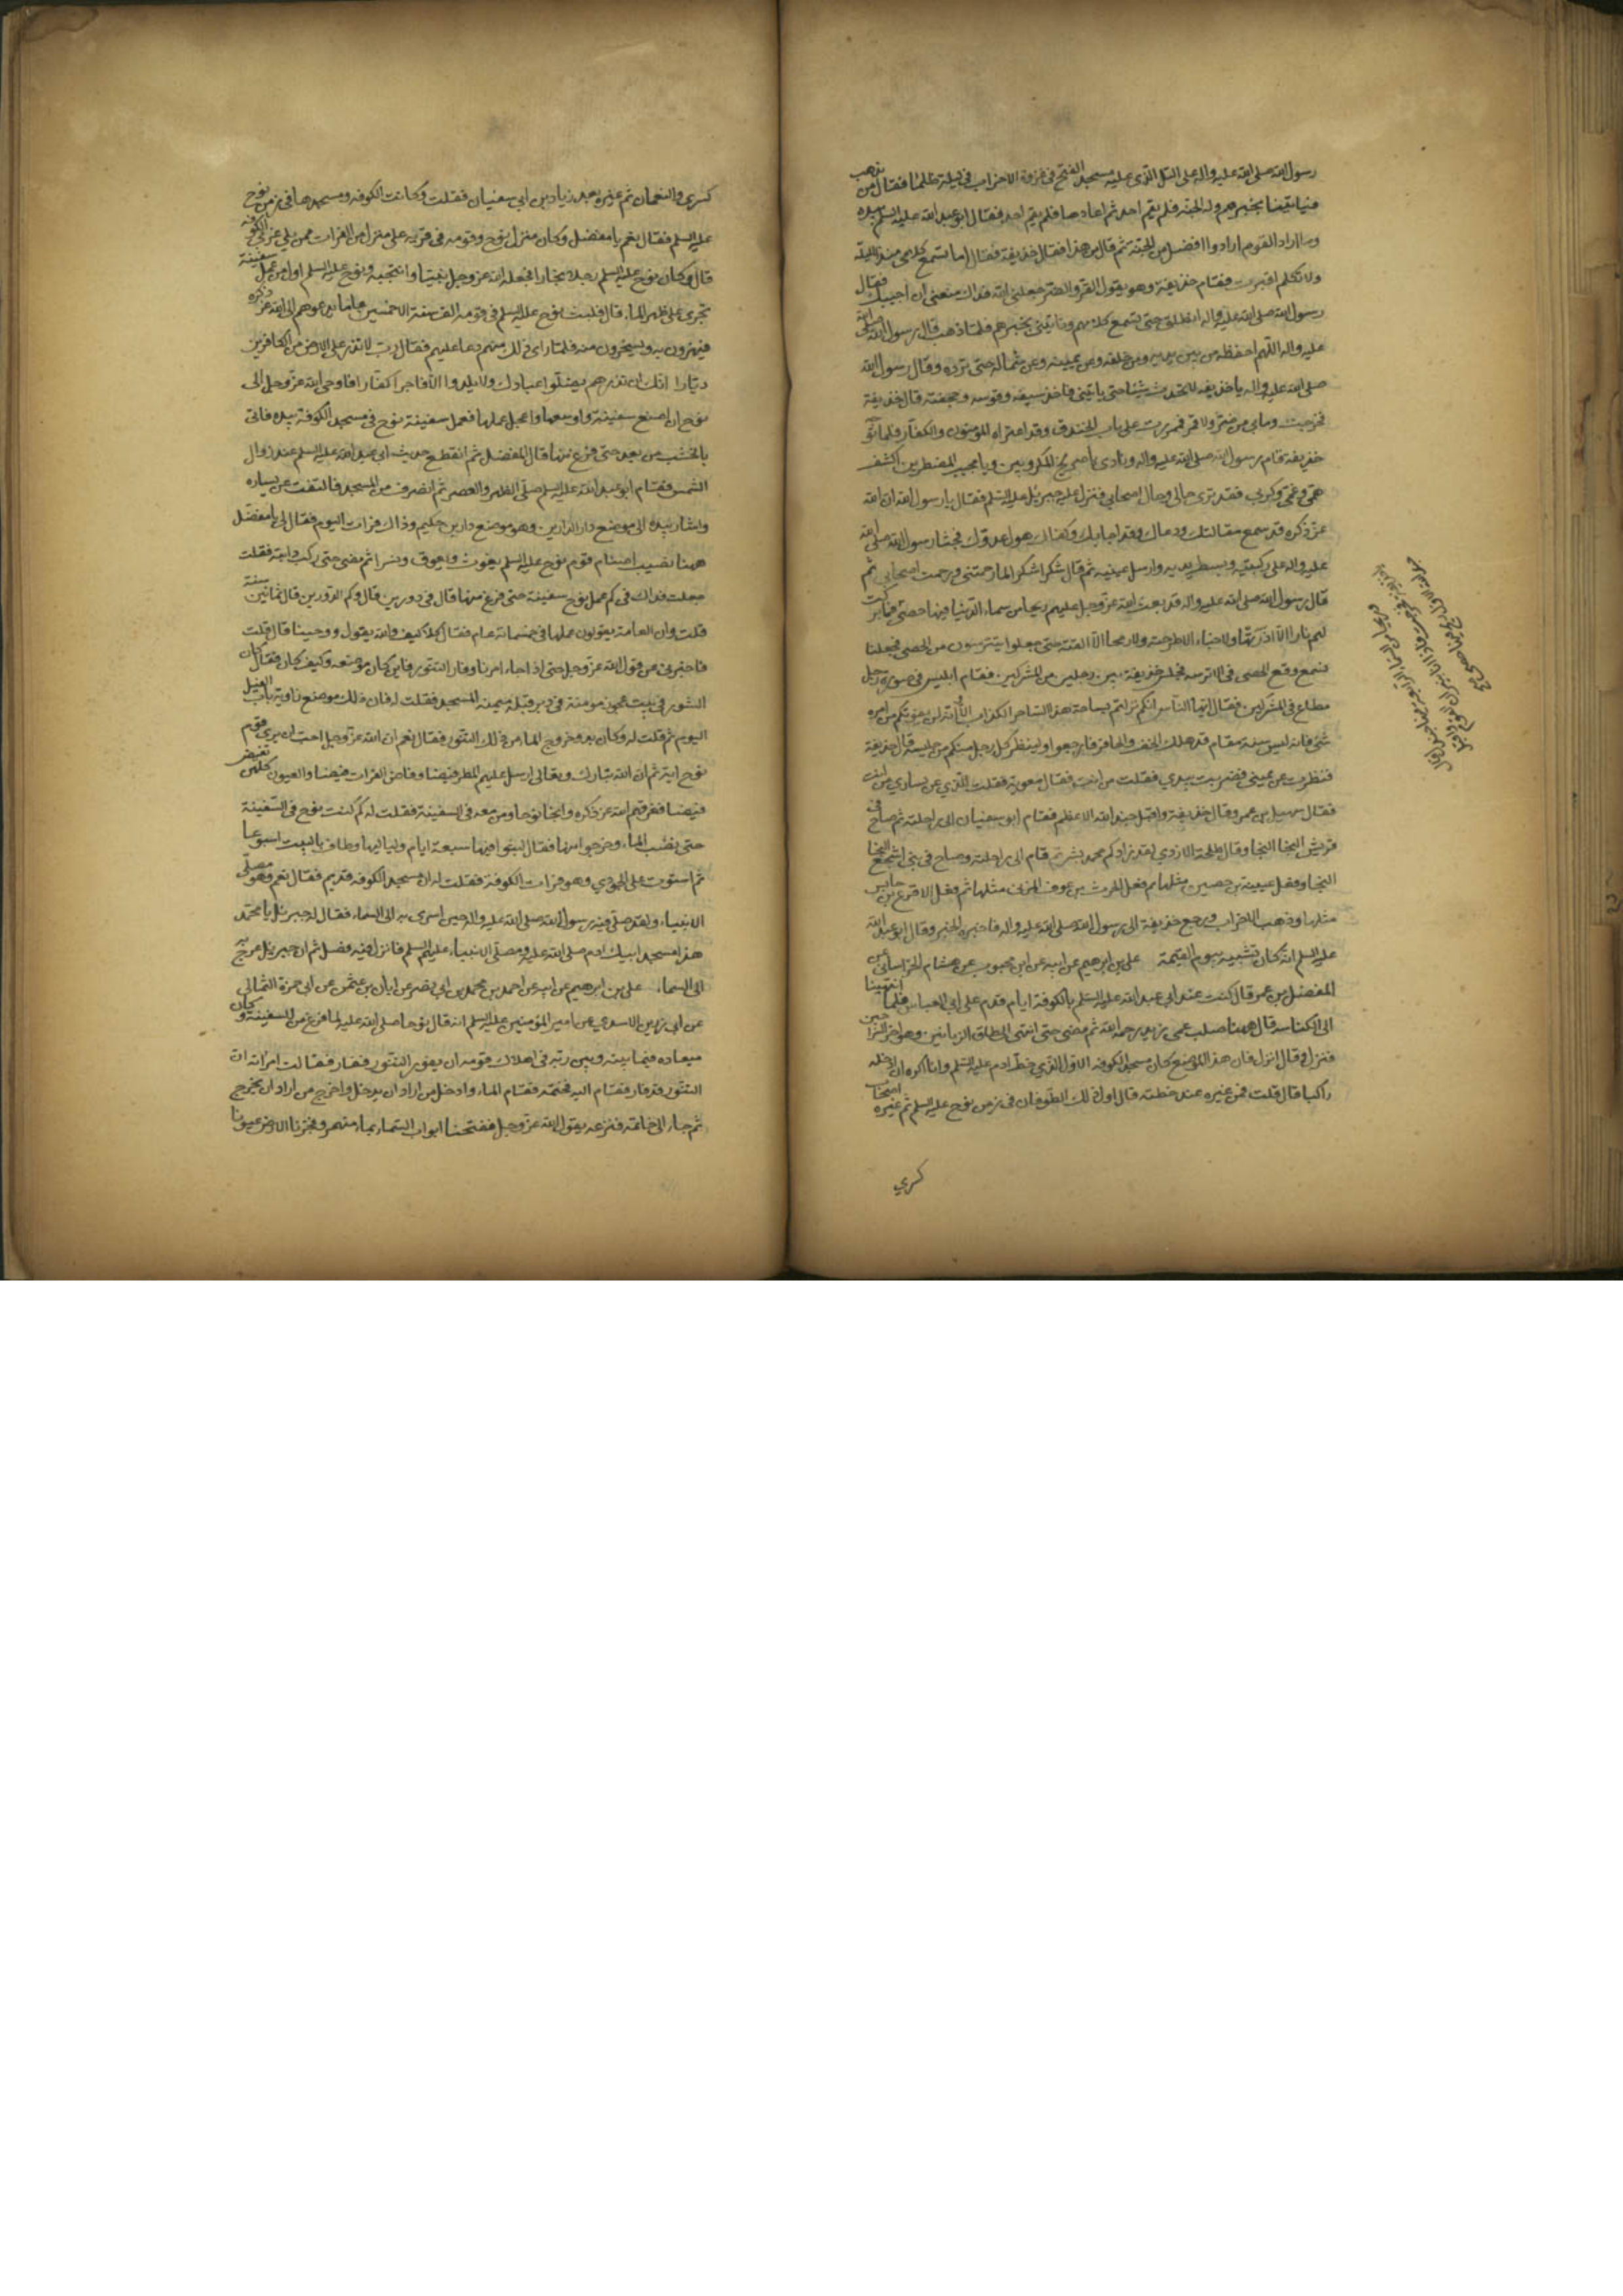 رسول الله صلى الله عليه واله على التل الذى عليه مسجد الفتح فى غزوة الاحزاب فى ليلة ظلماء فقال من يذهب
فياتينا بخبرهم وله الجنة فلم يقم احد ثم اعادها فلم يقم احد فقال ابو عبد الله عليه السلم بيده
وما اراد القوم ارادوا افضل من الجنة ثم قال من هذا فقال حذيفة فقال اما تسمع كلامى منذ الليلة
ولا تكلم اقبرت فقام حذيفة وهو يقول القر والضر جعلنى الله فداك منعنى ان اجيبك فقال
رسول الله صلى الله عليه واله انطلق حتى تسمع كلامهم وتاتينى بخبرهم فلما ذهب قال رسول الله صلى الله
عليه واله اللهم احفظه من بين يديه ومن خلفه وعن يمينه وعن شماله حتى ترده وقال رسول الله
صلى الله عليه واله يا حذيفه لا تحدث شيئا حتى ياتينى فاخذ سيفه وقوسه وحجفته قال حذيفة
فخرجت وما بى من ضر ولا قر فمررت على باب الخندق وقد اعتراه المؤمنون والكفار فلما توجه
حذيفة قام رسول الله صلى الله عليه واله ونادى يا صريخ المكروبين ويا مجيب المضطرين اكشف
همى وغمى وكربى فقد ترى حالى وحال اصحابى فنزل عليه جبرئيل عليه السلم فقال يا رسول الله ان الله
عز ذكره قد سمع مقالتك ودعاك وقد اجابك وكفاك هول عدوك فجثا رسول الله صلى الله
عليه واله على ركبتيه وبسط يديه وارسل عينيه ثم قال شكرا شكرا كما رحمتنى ورحمت اصحابى ثم
قال رسول الله صلى الله عليه واله قد بعث الله عز وجل عليهم ريحا من سماء الدنيا فيها حصى فما تركت
لهم نارا الا اذرتها ولا خباء الا طرحته ولا رمحا الا القته حتى جعلوا يتترسون من الحصى فجعلنا
نسمع وقع الحصى فى الاترسه فجلس حذيفة بين رجلين من المشركين فقام ابليس فى صورة رجل
مطاع فى المشركين فقال ايها الناس انكم نزلتم بساحة هذا الساحر الكذاب الا وانه لن يفوتكم من امره
شئ فانه ليس سنة مقام قد هلك الخف والحافر فارجعوا ولينظر كل رجل منكم من جليسه قال حذيفة
فنظرت عن يمينى فضربت بيدى فقلت من انت فقال معوية فقلت للذى عن يسارى من انت
فقال سهيل بن عمرو قال حذيفة واقبل جند الله الاعظم فقام ابو سفيان الى راحلته ثم صاح فى
قريش النجا النجا وقال طلحة الازدى لقد زادكم محمد بشر ثم قام الى راحلته وصاح فى بنى اشجع النجا
النجا وفعل عيينة بن حصين مثلها ثم فعل الحرث بن عوف المزنى مثلها ثم فعل الاقرع بن حابس
مثلها وذهب الاحزاب ورجع حذيفة الى رسول الله صلى الله عليه واله فاخبره الخبر وقال ابو عبد الله
عليه السلم انه كان تشبيه بيوم القيمة على بن ابرهيم عن ابيه عن ابن محبوب عن هشام الخراسانى عن
المفضل بن عمر قال كنت عند ابى عبد الله عليه السلم بالكوفة ايام قدم على ابى العباس فلما انتهينا
الى الكناسه قال ههنا صلب عمى زيد رحمه الله ثم مضى حتى انتهى الى طاق الزياتين وهو اخر السراجين
فنزل وقال انزل فان هذا الموضع كان مسجد الكوفه الاول الذى خطه ادم عليه السلم وانا اكره ان ادخله
راكبا قال قلت فمن غيره عند خطته قال اما اول ذلك الطوفان فى زمن نوح عليه السلم ثم غيره اصحاب
كسرى
كسرى والنعمان ثم غيره بعد زياد بن ابى سفيان فقلت وكانت الكوفه ومسجدها فى زمن نوح
عليه السلم فقال نعم يا مفضل وكان منزل نوح وقومه فى قريه على منزل من الفرات مما يلى غربى الكوفه
قال وكان نوح عليه السلم رجلا نجارا فجعله الله عز وجل نبيا وانتجبه ونوح عليه السلم اول من عمل سفينة
تجرى على ظهر الماء قال فلبث نوح عليه السلم فى قومه الف سنة الا خمسين عاما يدعوهم الى الله عز ذكره
فيهزون به ويسخرون منه فلما راى ذلك منهم دعا عليهم فقال رب لا تذر على الارض من الكافرين
ديارا انك ان تذرهم يضلوا عبادك ولا يلدوا الا فاجرا كفارا فاوحى الله عز وجل الى
نوح ان اصنع سفينة واوسعها وعجل عملها فعمل سفينة نوح فى مسجد الكوفة بيده فاتى
بالخشب من بعد حتى فرغ منها قال المفضل ثم انقطع حديث ابى عبد الله عليه السلم عند زوال
الشمس فقام ابو عبد الله عليه السلم صلى الظهر والعصر ثم انصرف من المسجد فالتفت عن يساره
واشار بيده الى موضع دار الدارين وهو موضع دار بن حكيم وذاك فرات اليوم فقال لى يا مفضل
ههنا نصبت اصنام قوم نوح عليه السلم يغوث ويعوق ونسرا ثم مضى حتى ركب دابته فقلت
جعلت فداك فى كم عمل نوح سفينة حتى فرغ منها قال فى دورين قال وكم الدورين قال ثمانين سنة
قلت وان العامة يقولون عملها فى خمسمائة عام فقال كلا كيف والله يقول ووحينا قال قلت
فاخبرنى عن قول الله عز وجل حتى اذا جاء امرنا وفار التنور فاين كان موضعه وكيف كان فقال كان
التنور فى بيت عجوز مومنة فى دبر قبلة ميمنة المسجد فقلت له فان ذلك موضع زاوية باب الفيل
اليوم ثم قلت له وكان بدو خروج الماء من ذلك التنور فقال نعم ان الله عز وجل احب ان يرى قوم
نوح اية ثم ان الله تبارك وتعالى ارسل عليهم المطر فيضا وفاض الفرات فيضا والعيون كلهن تفيض
فيضا فغرقهم الله عز ذكره وانجا نوحا ومن معه فى السفينة فقلت له كم لبث نوح فى السفينة
حتى نضب الماء وخرجوا منها فقال لبثوا فيها سبعة ايام ولياليها وطاف بالبيت اسبوعا
ثم استوت على الجودى وهو فرات الكوفة فقلت له ان مسجد الكوفه قديم فقال نعم وهو مصلى
الانبياء ولقد صلى فيه رسول الله صلى الله عليه واله حين اسرى به الى السماء فقال له جبرئيل يا محمد
هذا مسجد ابيك ادم صلى الله عليه ومصلى الانبياء عليهم السلم فانزل فيه فصل ثم ان جبرئيل عرج به
الى السماء على بن ابرهيم عن ابيه عن احمد بن محمد بن ابى نصر عن ابان بن عثمن عن ابى حمزة الثمالى
عن ابى رزين الاسدى عن امير المؤمنين عليه السلم انه قال نوحا صلى الله عليه لما فرغ من السفينة وكان
ميعاده فيما بينه وبين ربه فى اهلاك قومه ان يفور التنور ففار فقالت امراته ان
التنور قد فار فقام اليه فختمه فقام الماء وادخل من اراد ان يدخل واخرج من اراد ان يخرج
ثم جاء الى خاتمه فنزعه يقول الله عز وجل ففتحنا ابواب السماء بماء منهمر وفجرنا الارض عيونا